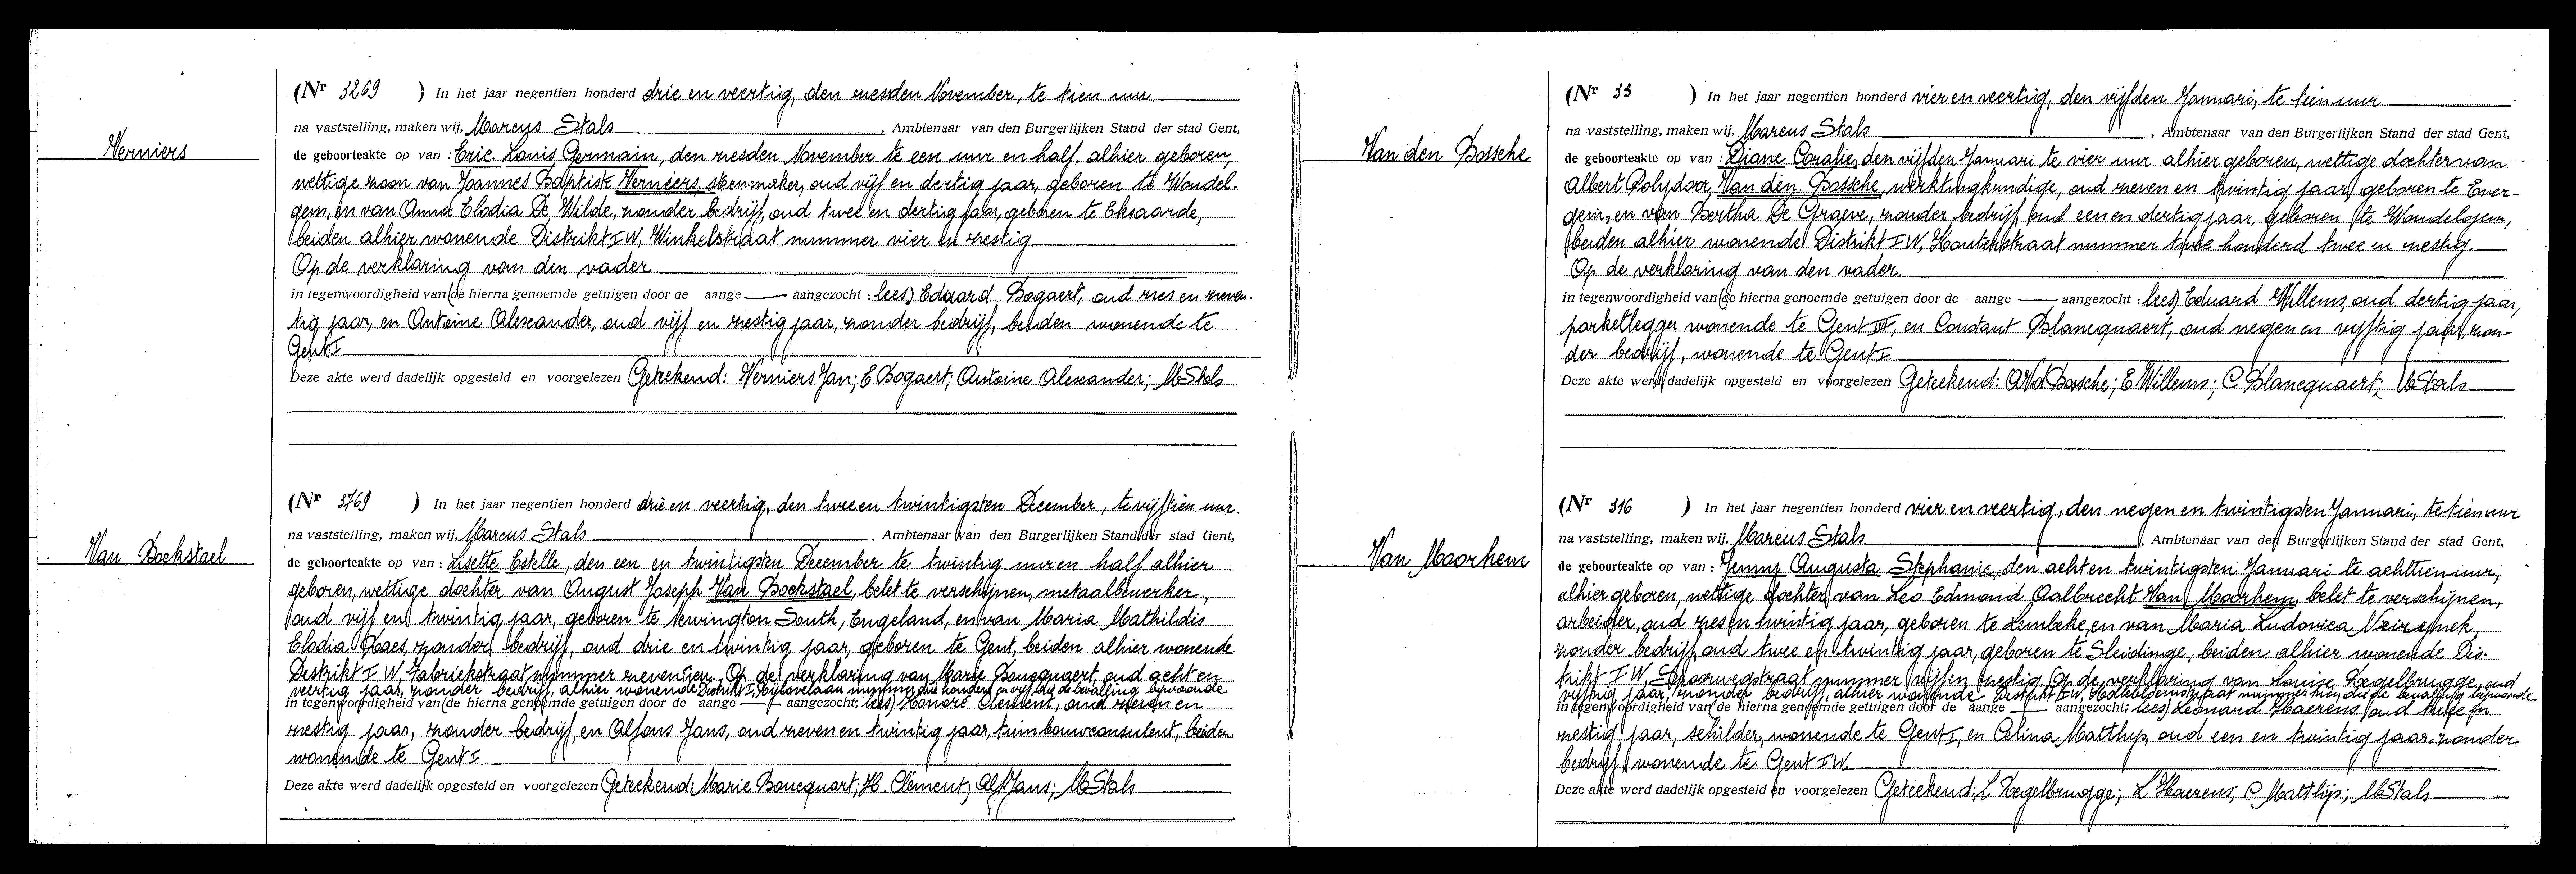 Verniers
(Nr 3269 ) In het jaar negentien honderd drie en veertig, den zesden November, te tien uur
na vaststelling, maken wij, Marcus Stals, Ambtenaar van den Burgerlijken Stand der stad Gent,
de geboorteakte op van : Eric Louis Germain, den zesden November te een uur en half, alhier geboren,
wettige zoon van Joannes Baptist Verniers, steenmaker, oud vijf en dertig jaar, geboren te Wondel-
gem, en van Anna Elodia De Wilde, zonder bedrijf, oud twee en dertig jaar, geboren te Eksaarde,
beiden alhier wonende Distrikt I W, Winkelstraat nummer vier en zestig
Op de verklaring van den vader.
in tegenwoordigheid van (de hierna genoemde getuigen door de aange — aangezocht : lees) Eduard Bogaert, oud zes en zeven-
tig jaar, en Antoine Alexander, oud vijf en zestig jaar, zonder bedrijf, beiden wonende te
Gent I
Deze akte werd dadelijk opgesteld en voorgelezen Geteekend: Verniers Jan; E Bogaert; Antoine Alexander; M Stals
Van Bockstael
(Nr 3769 ) In het jaar negentien honderd drie en veertig, den twee en twintigsten December, te vijftien uur.
na vaststelling, maken wij, Marcus Stals, Ambtenaar van den Burgerlijken Stand der stad Gent,
de geboorteakte op van : Lisette Estelle, den een en twintigsten December te twintig uur en half alhier
geboren, wettige dochter van August Joseph Van Bockstael, belet te verschijnen, metaalbewerker,
oud vijf en twintig jaar, geboren te Newington South, Engeland, en van Maria Mathildis
Elodia Claes, zonder bedrijf, oud drie en twintig jaar, geboren te Gent, beiden alhier wonende
Distrikt I W, Fabriekstraat nummer zeventien. Op de verklaring van Marie Boucquaert, oud acht en
veertig jaar, zonder bedrijf, alhier wonende Distrikt I, nummer drie honderd en vijf, die de bevalling bijwoonde
in tegenwoordigheid van (de hierna genoemde getuigen door de aange — aangezocht; lees) Honoré Clement, oud zeven en
zestig jaar, zonder bedrijf, en Alfons Jans, oud zeven en twintig jaar, tuinbouwconsulent, beiden
wonende te Gent I
Deze akte werd dadelijk opgesteld en voorgelezen Geteekend: Marie Boucquart; H. Clement; Alf Jans; M Stals
Van den Bossche
(Nr 33 ) In het jaar negentien honderd vier en veertig, den vijfden Januari, te tien uur
na vaststelling, maken wij, Marcus Stals, Ambtenaar van den Burgerlijken Stand der stad Gent,
de geboorteakte op van : Diane Coralie, den vijfden Januari te vier uur alhier geboren, wettige dochter van
Albert Polydoor Van den Bossche, werktuigkundige, oud zeven en twintig jaar, geboren te Ever-
gem, en van Bertha De Graeve, zonder bedrijf, oud een en dertig jaar, geboren te Wondelgem,
beiden alhier wonende Distrikt I W, Houtenstraat nummer twee honderd twee en zestig.
Op de verklaring van den vader.
in tegenwoordigheid van (de hierna genoemde getuigen door de aange — aangezocht : lees) Eduard Willems, oud dertig jaar,
parketlegger wonende te Gent III, en Constant Blancquaert, oud negen en vijftig jaar, zon-
der bedrijf, wonende te Gent I
Deze akte werd dadelijk opgesteld en voorgelezen Geteekend: A Vd Bossche; E Willems; C Blancquaert; M Stals
Van Moorhem
(Nr 316 ) In het jaar negentien honderd vier en veertig, den negen en twintigsten Januari, te tien uur
na vaststelling, maken wij, Marcus Stals, Ambtenaar van den Burgerlijken Stand der stad Gent,
de geboorteakte op van : Jenny Augusta Stephanie, den acht en twintigsten Januari te achttien uur,
alhier geboren, wettige dochter van Leo Edmond Aalbrecht Van Moorhem belet te verschijnen,
arbeider, oud zes en twintig jaar, geboren te Lembeke, en van Maria Ludovica Neirynck,
zonder bedrijf, oud twee en twintig jaar, geboren te Sleidinge, beiden alhier wonende Dis-
trikt I W, Spoorwegstraat nummer vijf en zestig. Op de verklaring van Louise Zegelbrugge, oud
vijftig jaar, zonder bedrijf, alhier wonende Distrikt I W, nummer tien die de bevalling bijwoonde
in tegenwoordigheid van (de hierna genoemde getuigen door de aange — aangezocht; lees) Leonard Haerens, oud twee en
zestig jaar, schilder, wonende te Gent I, en Celina Matthys, oud een en twintig jaar, zonder
bedrijf, wonende te Gent I W.
Deze akte werd dadelijk opgesteld en voorgelezen Geteekend: L Zegelbrugge; L Haerens; C Matthijs; M Stals